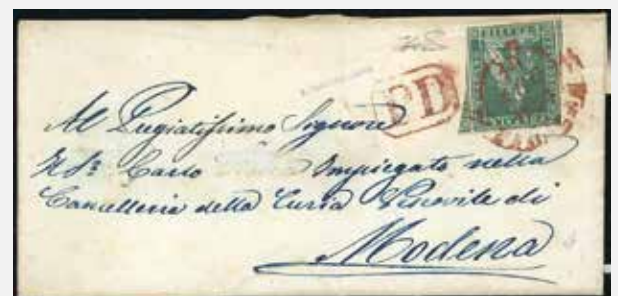 PD
Al Pregiatissimo Signore
Il Sr. Carlo Impiegato nella
Cancelleria della Curia di
Modena